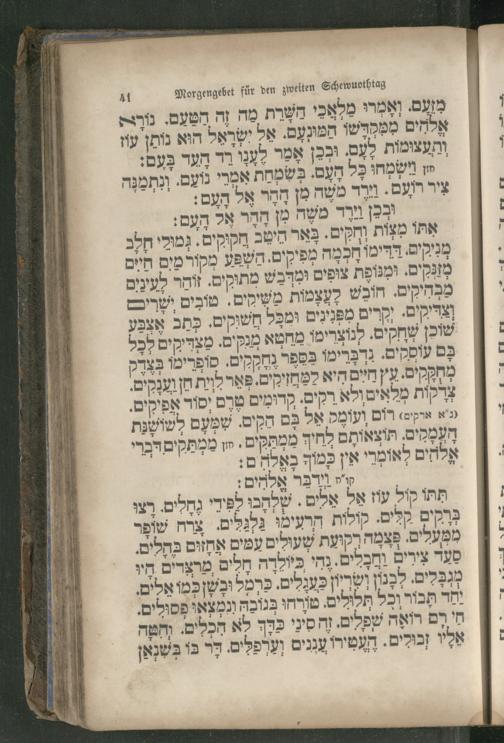 41 Morgengebet für den zweiten Schewuothtag
מִזַּעַם. וְאָמְרוּ מַלְאֲכֵי הַשָּׁרֵת מַה זֶה הַטַּעַם. נוֹרָא
אֱלֹהִים מִמִּקְדָּשׁוֹ הַמּוּנְעָם. אֵל יִשְׂרָאֵל הוּא נוֹתֵן עוֹז
וְתַעֲצוּמוֹת לָעָם. וּבְכֵן אָמַר לַעֲנָו רֵד הָעֵד בָּעָם:
חזן וַיִּשְׂמְחוּ כָּל הָעָם. בְּשִׂמְחַת אִמְרֵי נוֹעַם. וְנִתְמַנָּה
צִיר רוֹעָם. וַיֵּרֶד מֹשֶׁה מִן הָהָר אֶל הָעָם:
וּבְכֵן וַיֵּרֶד מֹשֶׁה מִן הָהָר אֶל הָעָם:
אִתּוֹ מִצְוֹת וְחֻקִּים. בָּאֵר הֵיטֵב חֲקוּקִים. גְּמוּלֵי חָלָב
מְנִיקִים. דַּדֵּימוֹ חָכְמָה מְפִיקִים. הַשְׁפַּע מְקוֹר מַיִם חַיִּים
מְזַנְּקִים. וּמִנּוֹפֶת צוּפִים וּמִדְּבַשׁ מְתוּקִים. זוֹהַר לָעֵינַיִם
מַבְהִיקִים. חוֹבֵשׁ לָעֲצָמוֹת מַשִּׁיקִים. טוֹבִים יְשָׁרִים
וְצַדִּיקִים. יְקָרִים מִפְּנִינִים וּמִכָּל חֲשׁוּקִים. כְּתַב אֶצְבַּע
שׁוֹכֵן שְׁחָקִים. לְנוֹצְרֵימוֹ מֵחֵטְא מְנַקִּים. מַצְדִּיקִים לְכָל
בָּם עוֹסְקִים. נִדְבָּרֵימוֹ בַּסֵּפֶר נֶחְקָקִים. סוֹפְרֵימוֹ בְּצֶדֶק
מְחֻקָּקִים. עֵץ חַיִּים הִיא לַמַּחֲזִיקִים. פְּאֵר לִוְיַת חֵן וַעֲנָקִים.
צְדָקוֹת מְלֵאִים וְלֹא רֵקִים. קְדוּמִים טֶרֶם יְסוֹד אֲפִיקִים.
(נ״א ארקים) רוּם וְעוֹמֶק אֵל בָּם הֵקִים. שִׁמְעָם לְשׁוֹשַׁנַּת
הָעֲמָקִים. תּוֹצְאוֹתָם לְחֵיךְ מַמְתַּקִּים. חזן מַמְתַּקִּים דִּבְרֵי
אֱלֹהִים לְאוֹמְרֵי אֵין כָּמוֹךָ בָאֱלֹהִים:
קו״ח וַיְדַבֵּר אֱלֹהִים:
תִּתּוֹ קוֹל עוֹז אֵל אֵלִים. שִׁלְהֲבוּ לַפִּידֵי גֶחָלִים. רָצוּ
בְּרָקִים קַלִּים. קוֹלוֹת הִרְעִימוּ גַּלְגַּלִּים. צָרַח שׁוֹפָר
מִמַּעְלִים. פָּצְמָה רְקוּעַת שְׁעוּלִים עַמִּים אֲחָזוּם בֶּהָלִים.
סַעַד צִירִים וַחֲבָלִים. נְהִי כְּיוֹלֵדָה חָלִים מְרַצְּדִים הָיוּ
מְנֻבָּלִים. לְבָנוֹן וְשִׂרְיוֹן כַּעֲגָלִים. כַּרְמֶל וּבָשָׁן כְּמוֹ אֵלִים.
יַחַד תָּבוֹר וְכָל תְּלוּלִים. טוֹרְחוּ בְּגוֹבַהּ וְנִמְצְאוּ פְסוּלִים.
חַי רָם רוֹאֶה שְׁפָלִים. זֶה סִינַי כַּדָּךְ לֹא הִכְלִים. וְהִטָּה
אֵלָיו זְבוּלִים. הֶעֱטִירוֹ עֲנָנִים וְעַרְפַּלִּים. דָּר בּוֹ בְּשִׁנְאַן